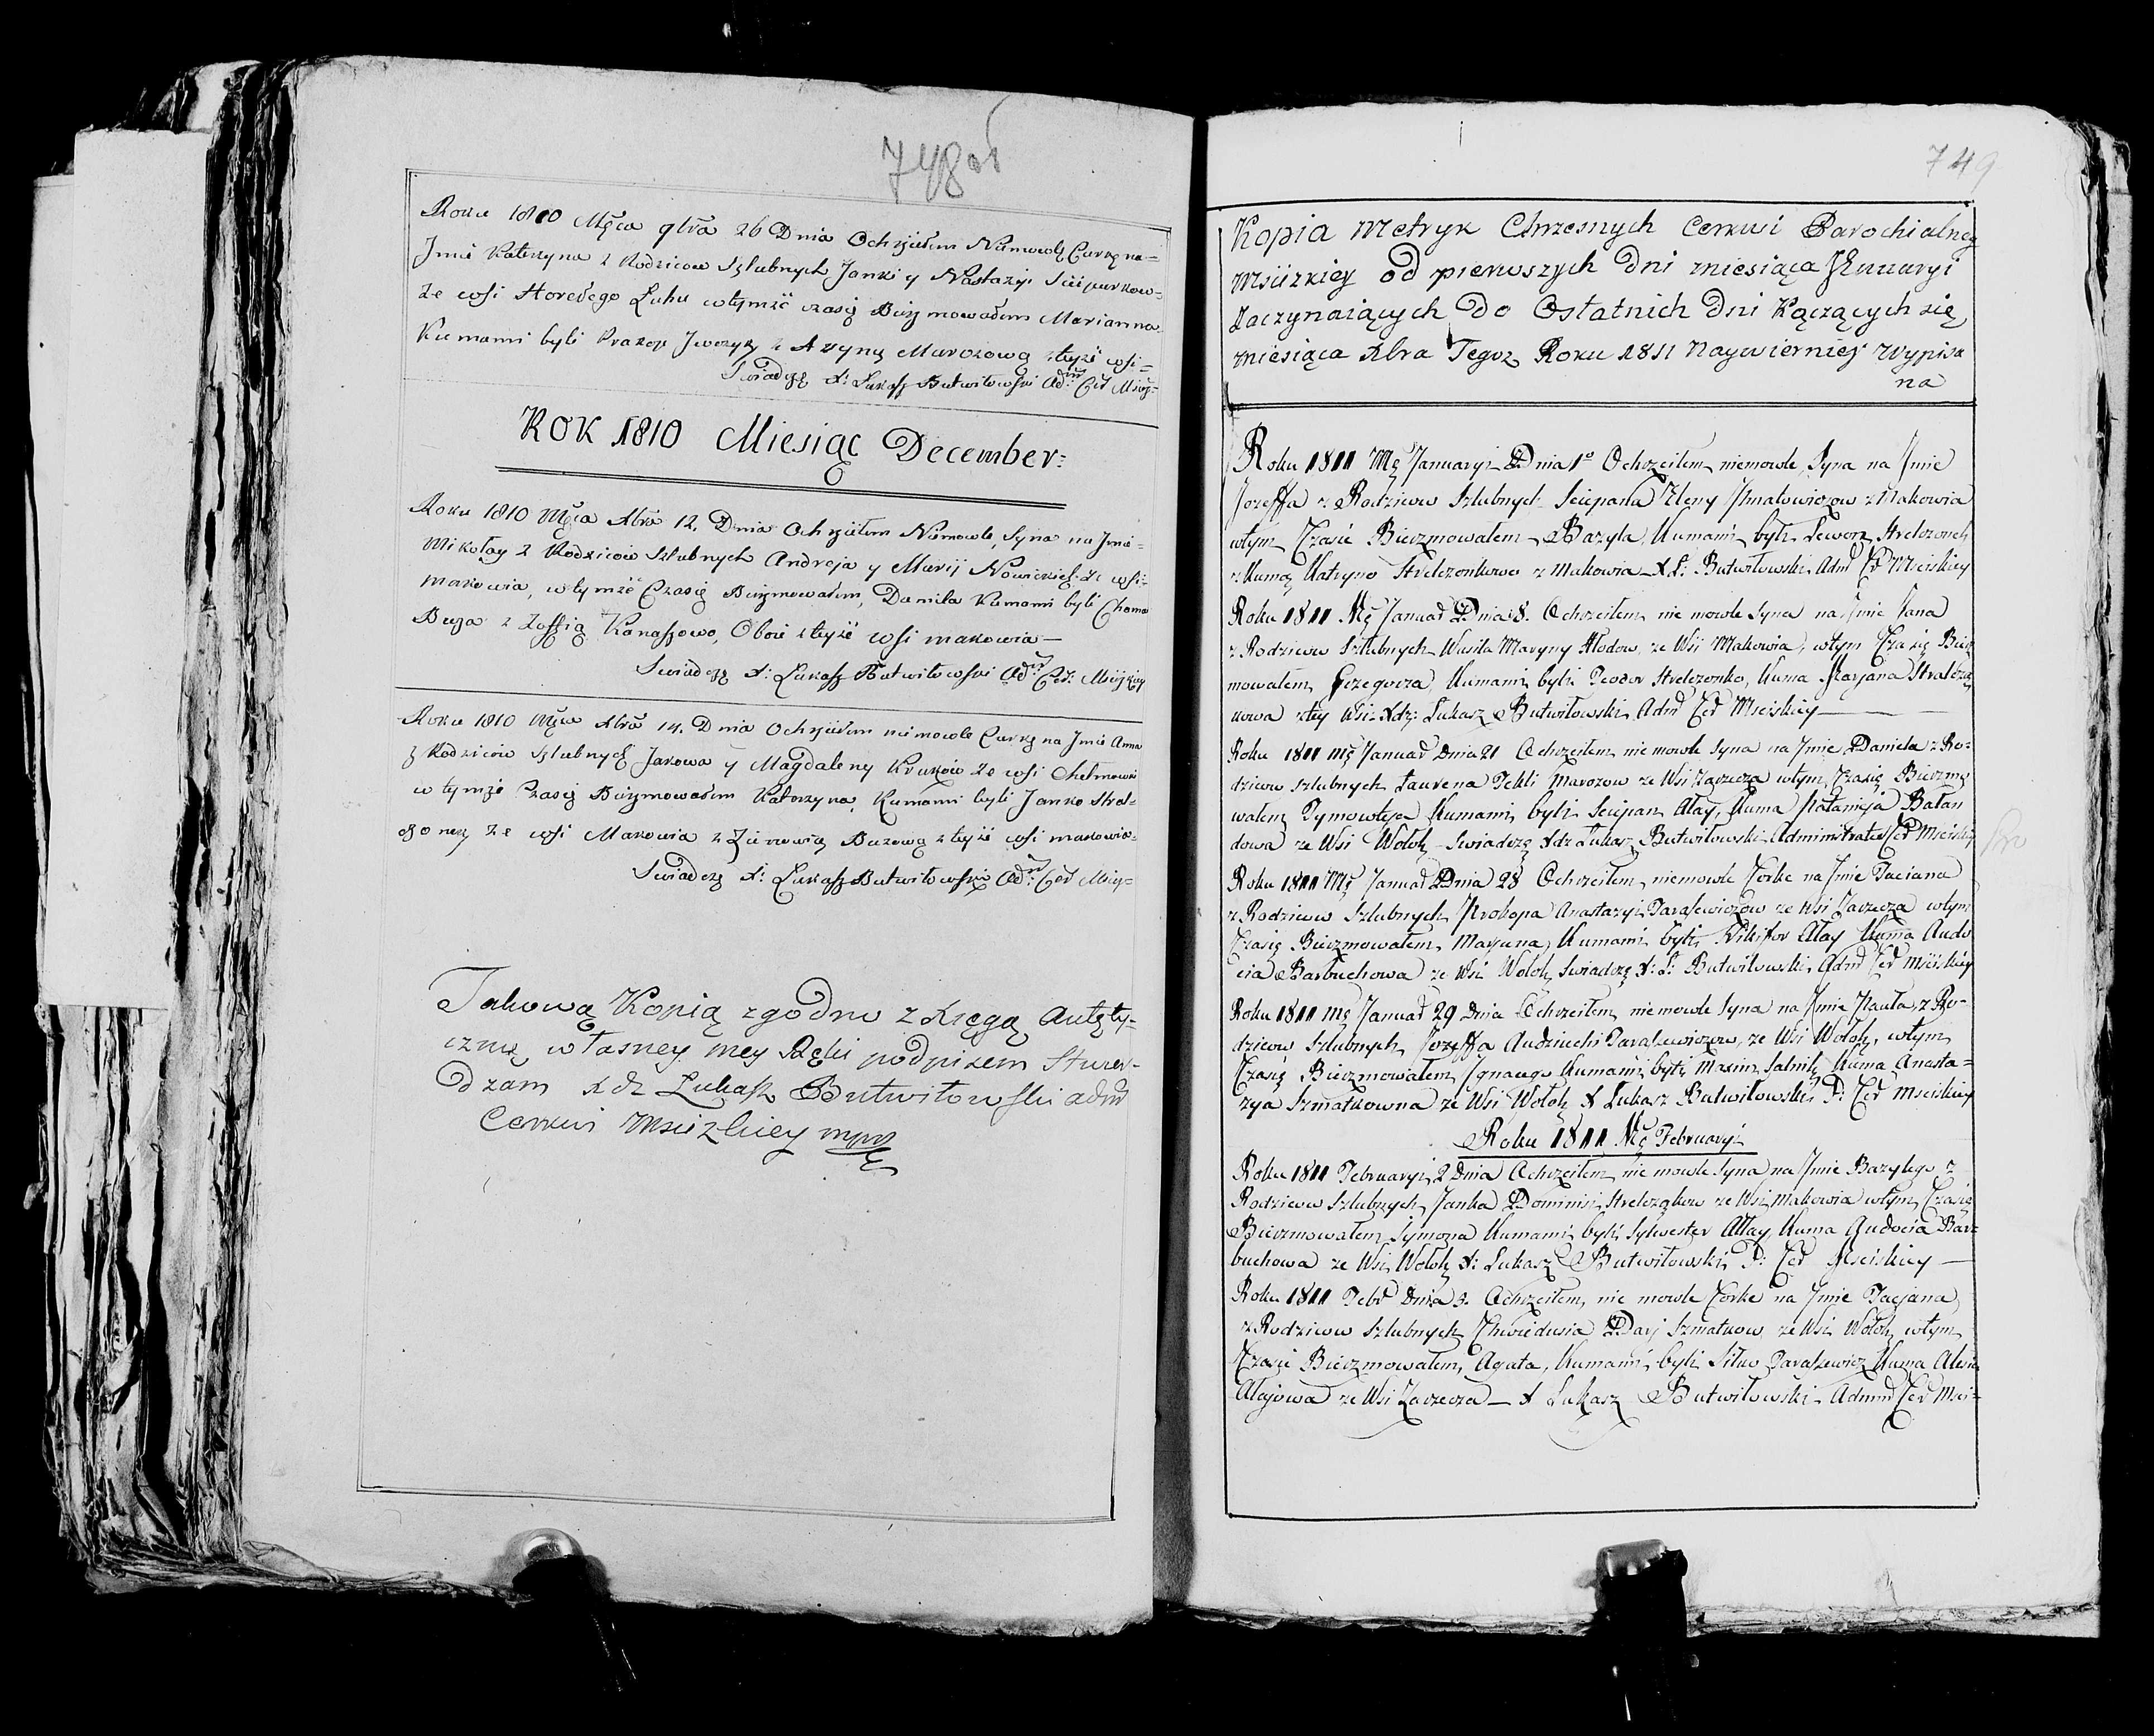 748об
Roku 1810 Męca 9bra 26 Dnia Ochrzciłem Niemowlę Curkę na=
Jmie Katerzyna z Rodzicow Szlubnych Janki y Nastazyi Sciepurkow=
ze wsi Horełego Luhu wtymże czasię Birzmowałem Marianna.
Kumami byli Prakop Jwczyk z Aryną Marozową zteyże wsi=
Swiadczę X: Łukasz Butwiłowski Adm Cer Msciż=
ROK 1810 Miesiąc December:
Roku 1810 Męca Xbra 12. Dnia Ochrzciłem Niemowle, Syna na Jmie=
Mikołay z Rodzicow Szlubnych Andreja y Marij Nowickich ze wsi=
makowia, wtymże Czasię Birzmowałem, Daniła Kumami byli Choma
Buza z Zoffią Kanaszowo, Oboie zteyże wsi makowia—
Swiadczę X: Łukasz Butwiłowski Adm Cer: Msciżkiey
Roku 1810 Męca Xbra 14. Dnia Ochrzciłem niemowle Curkę na Jmie Anna
z Rodziców Szlubnych Jakowa y Magdaleny Kruków ze wsi Chełmowi
w tymże Czasię Birzmowałem Katerzyna, Kumami byli Janko Strel=
czonek ze wsi Makowia z Zienowią Buzową zteyże wsi makowia=
Swiadczę X: Łukasz Butwiłowski Adm Cer Mściż=
Takową Kopią zgodno z Xięgą Autęty-
czną własney mey Ręki podpisem stwier-
dzam Xdz Łukasz Butwiłowski adm
Cerkwi Msciżkiey mpp
749
Kopia Metryk Chrzesnych Cerkwi Parochialney
Msciżkiey od pierwszych dni miesiąca JAnuaryi
Zaczynaiących do Ostatnich dni Kączących się
miesiąca Xbra Tegoż Roku 1811 Naywierniey wypisa
na
Roku 1811 Mę Januaryi Dnia 1º Ochrzciłem niemowle Syna na Jmie
Jozeffa z Rodzicow Szlubnych Sciepana Eleny Jhnatowiczow z Makowia
wtym Czasie Bierzmowałem Bazyla, Kumami byli Lewon Strelczonek
z Kumą Katryno Strelczonkowo z Makowia X Ł: Butwiłowski Adm Cer Msciskiey
Roku 1811 Mę Januar Dnia 8. Ochrzciłem nie mowle Syna na Jmie Jana
z Rodzicow Szlubnych Wasila Maryny Hłodow ze Wsi Makowia, wtym Czasię Bier
mowałem Grzegorza, Kumami byli Teodor Strelczonko, Kuma Marjana Stralczą
kowa ztey Wsi Xdz: Łukasz Butwiłowski Adm Cer Msciskiey
Roku 1811 mę Januar Dnia 21 Ochrzciłem nie mowle Syna na Jmie Daniela z Ro-
dzicow szlubnych Laurena Tekli Marozow ze Wsi Zarzecza wtym Czasię Bierzmo
wałem Tymoweja Kumami byli Sciepan Ałay, Kuma Natamja Bałan
dowa ze Wsi Wołok Swiadczę Xdz Łukasz Butwiłowski Administrator Cer Msciski
Roku 1811 Mę Januar Dnia 28 Ochrzciłem niemowle Corke na Jmie Taciana
z Rodzicow Szlubnych Prokopa Anastazyi Paraśewiczow ze wsi Zarzecza wtym
Czasię Bierzmowałem, Maryana, Kumami byli Nikifor Ałay Kuma Audo
cia Barbuchowa ze Wsi Wołok, Swiadczę X: Ł: Butwiłowski Adm Cer Msciskiey
Roku 1811 mę Januar 29 Dnia Ochrzciłem niemowle Syna na Jmie Pauła, z Ro-
dzicow Szlubnych Jozeffa Audziuchi Paraśewiczow, ze Wsi Wołok, wtym
Czasię Bierzmowałem Jgnacego Kumami byli Maxim Salnik Kuma Anasta=
zya Szmatkowna ze Wsi Wołok X Łukasz Butwiłowski P: Cer Msciskiey
Roku 1811 Mę Februaryi
Roku 1811 Februaryi 2 Dnia Ochrzciłem nie mowle Syna na Jmie Bazylego z
Rodzicow Szlubnych Janka Dominisi Strelcząkow ze Wsi Makowia wtym Czasię
Bierzmowałem Symona Kumami byli Sylwester Ałay Kuma Audocia Bar=
buchowa ze Wsi Wołok X: Łukasz Butwiłowski P: Cer Msciskiey
Roku 1811 Febr Dnia 3. Ochrzciłem nie mowle Corke na Jmie Tacjana
z Rodzicow Szlubnych Chwiedusia Darj Szmatkow ze Wsi Wołok wtym
Czasie Bierzmowałem, Agata, Kumami byli Siłwo Paraśewicz Kuma Alesia
Ałajowa ze Wsi Zarzecza — X Łukasz Butwiłowski Admin Cer Msci=